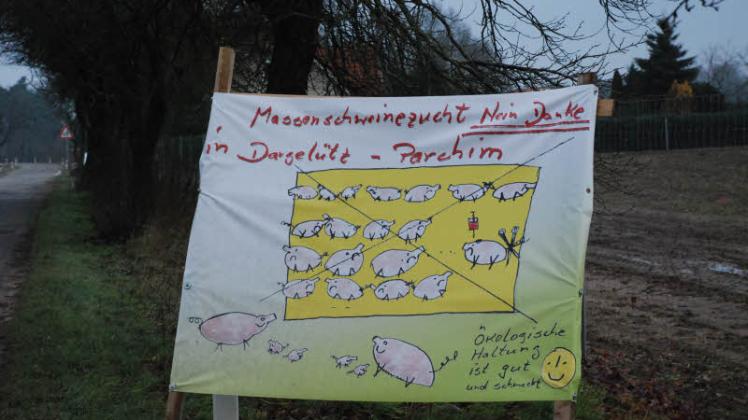 Massenschweinezucht Nein Danke
in Dargelütz - Parchim
Ökologische
Haltung
ist gut
und schmeckt